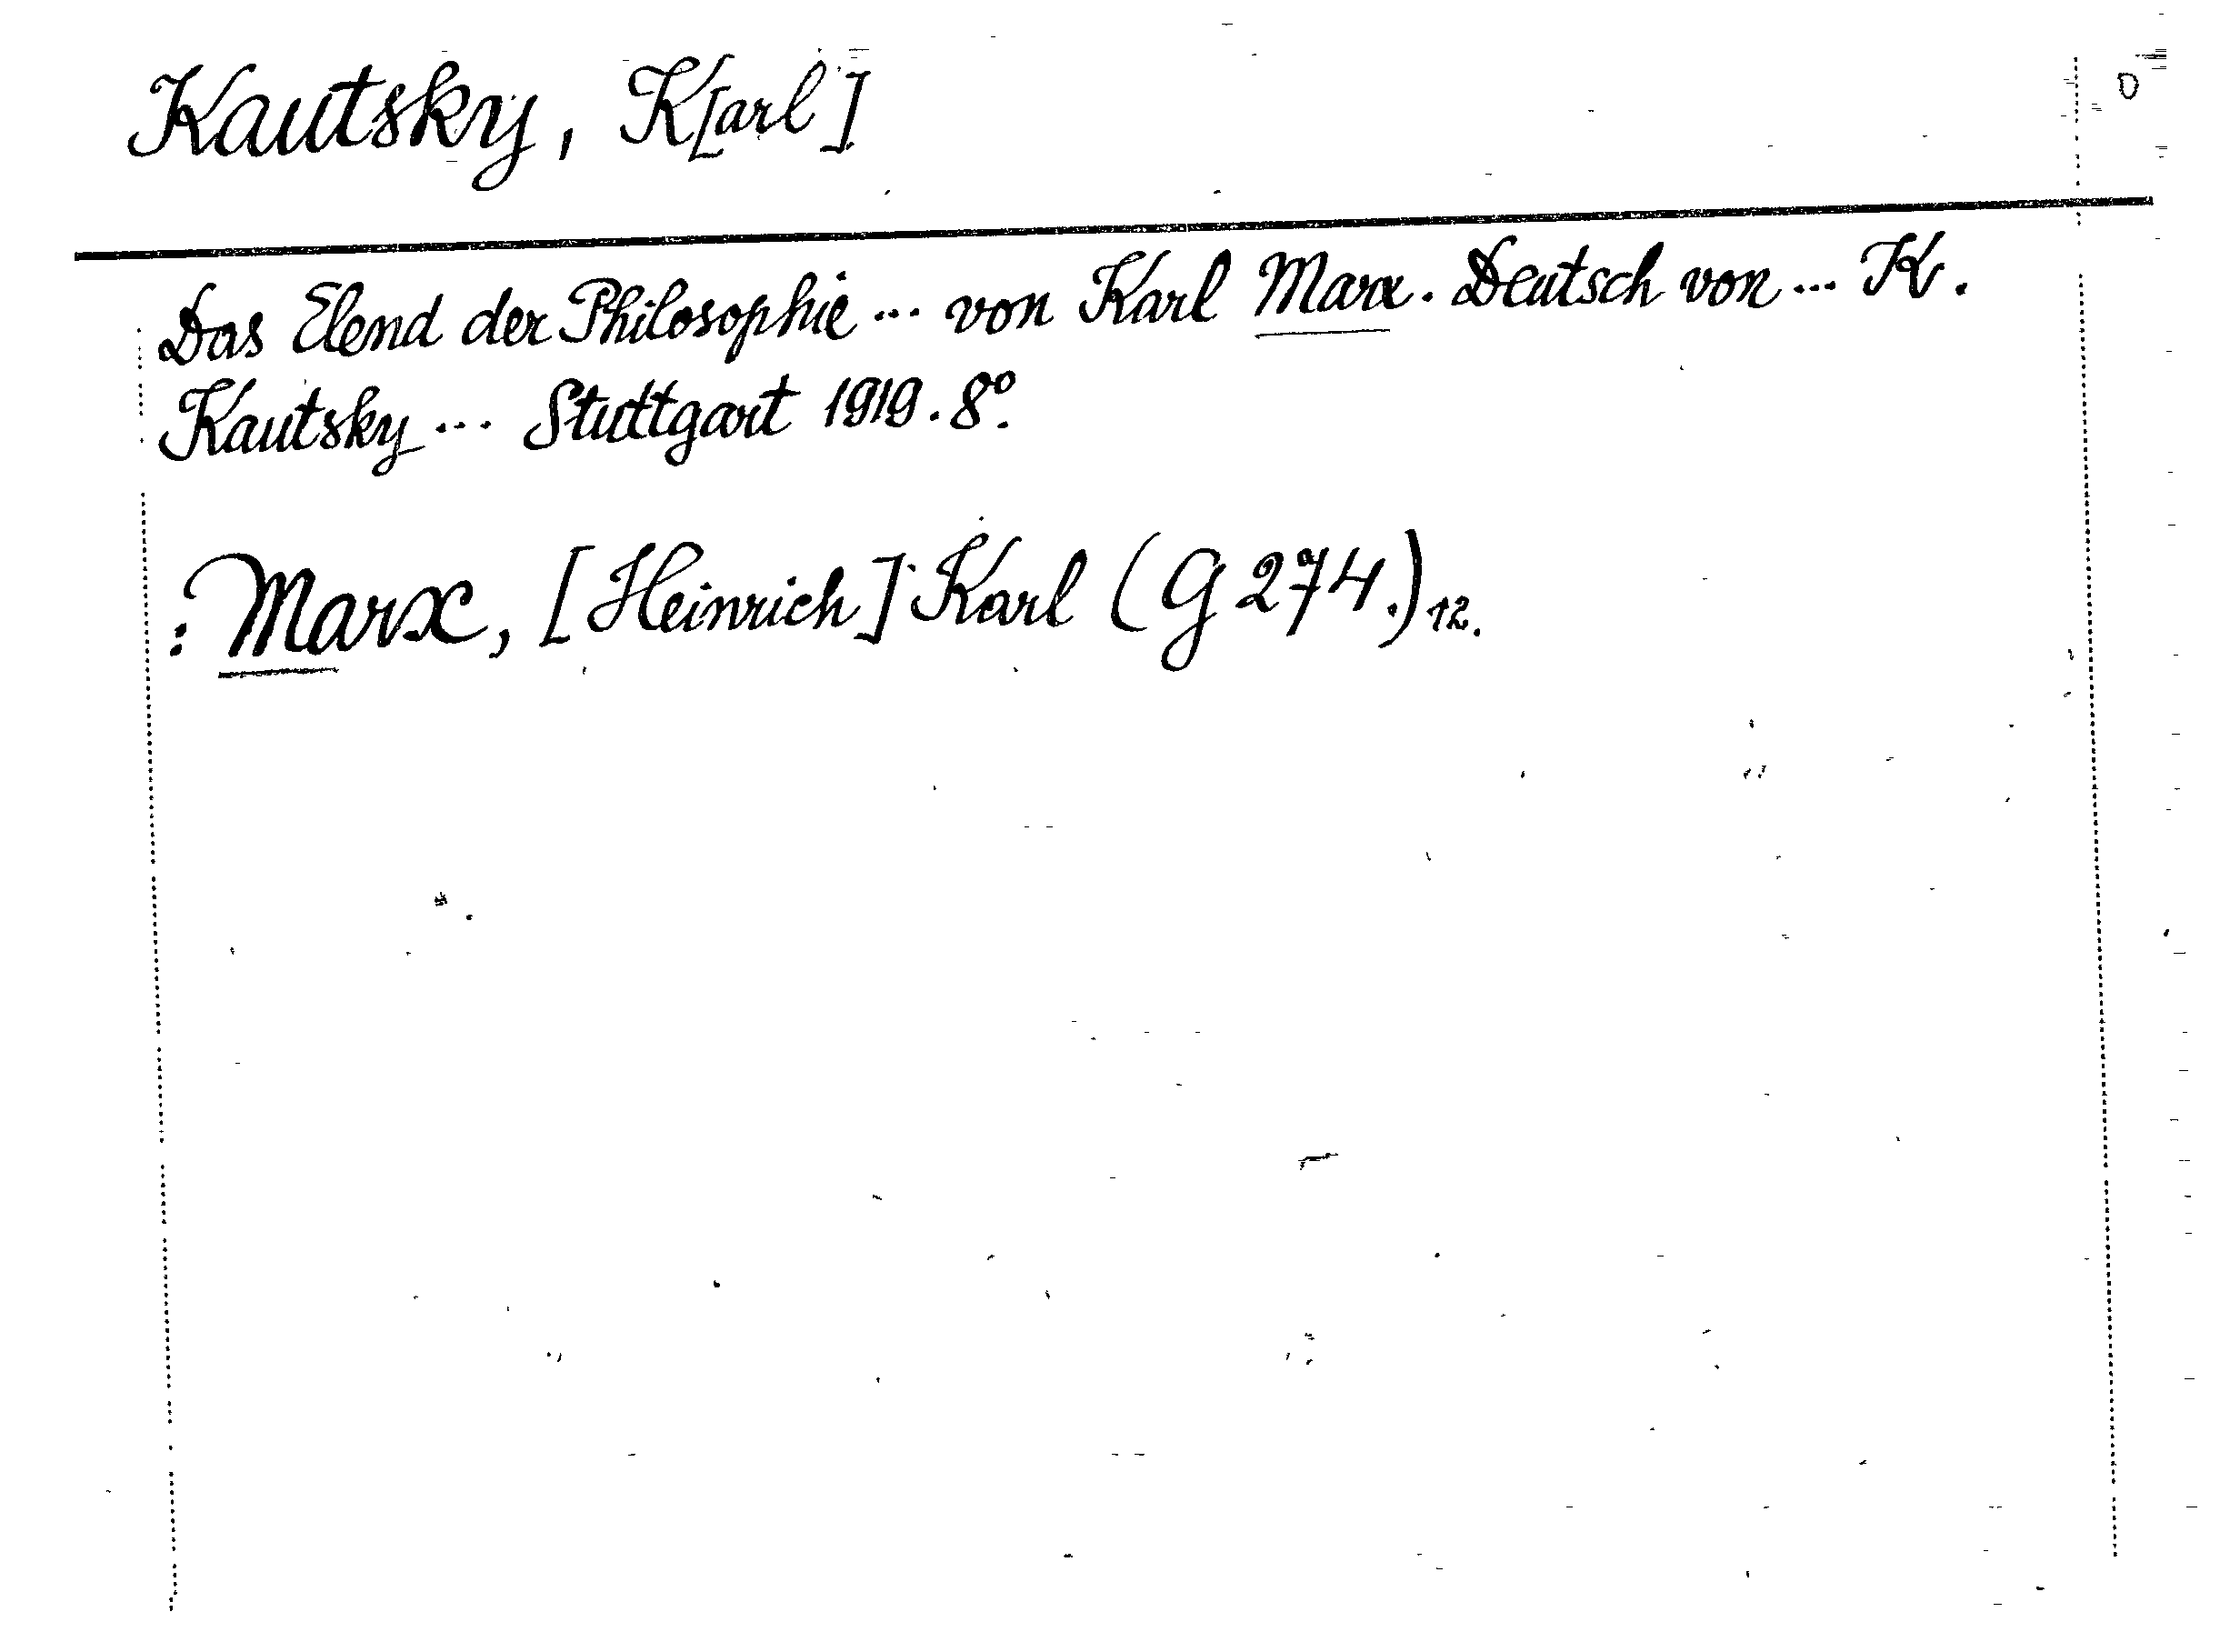 Kautsky, K[arl]
Das Elend der Philosophie ... von Karl Marx. Deutsch von ... K.
Kautsky ... Stuttgart 1919. 8°.
: Marx, [Heinrich] Karl (G 274.) 12.